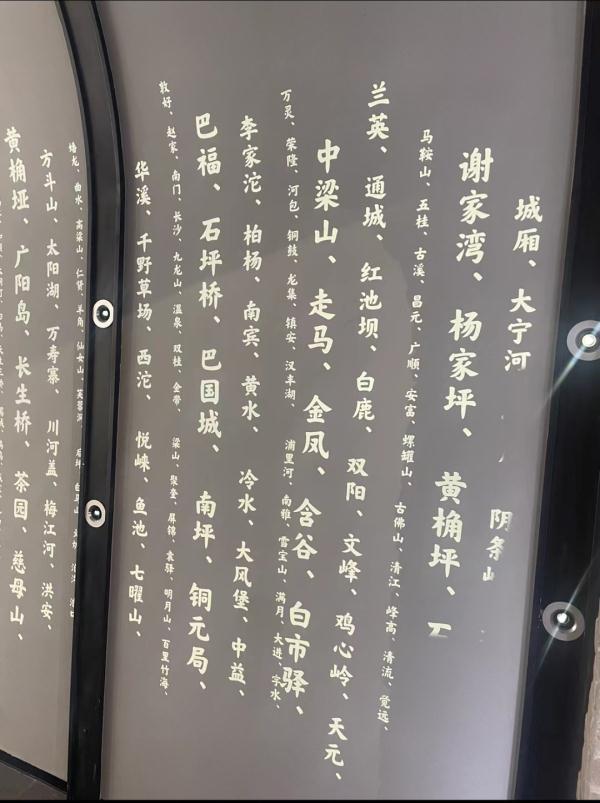 城厢、大宁河
阴条
谢家湾、杨家坪、黄桷坪、
马鞍山、五桂、古溪、昌元、广顺、安富、螺罐山、古佛山、清江、峰高、清流、觉远、
兰英、通城、红池坝、白鹿、双阳、文峰、鸡心岭、天元、
中梁山、走马、金凤、含谷、白市驿、
万灵、荣隆、河包、铜鼓、龙集、镇安、汉丰湖、浦里河、南雅、雪宝山、满月、大进、字水、
李家沱、柏杨、南宾、黄水、冷水、大风堡、中益、
巴福、石坪桥、巴国城、南坪、铜元局、
敦好、赵家、南门、长沙、九龙山、温泉、双桂、金带、梁山、聚奎、屏锦、袁驿、明月山、百里竹海、
华溪、千野草场、西沱、悦崃、鱼池、七曜山、
蟠龙、曲水、高梁山、仁贤、羊角、仙女山、芙蓉洞、后坪、白马山、
方斗山、太阳湖、万寿寨、川河盖、梅江河、洪安、
黄桷垭、广阳岛、长生桥、茶园、慈母山、